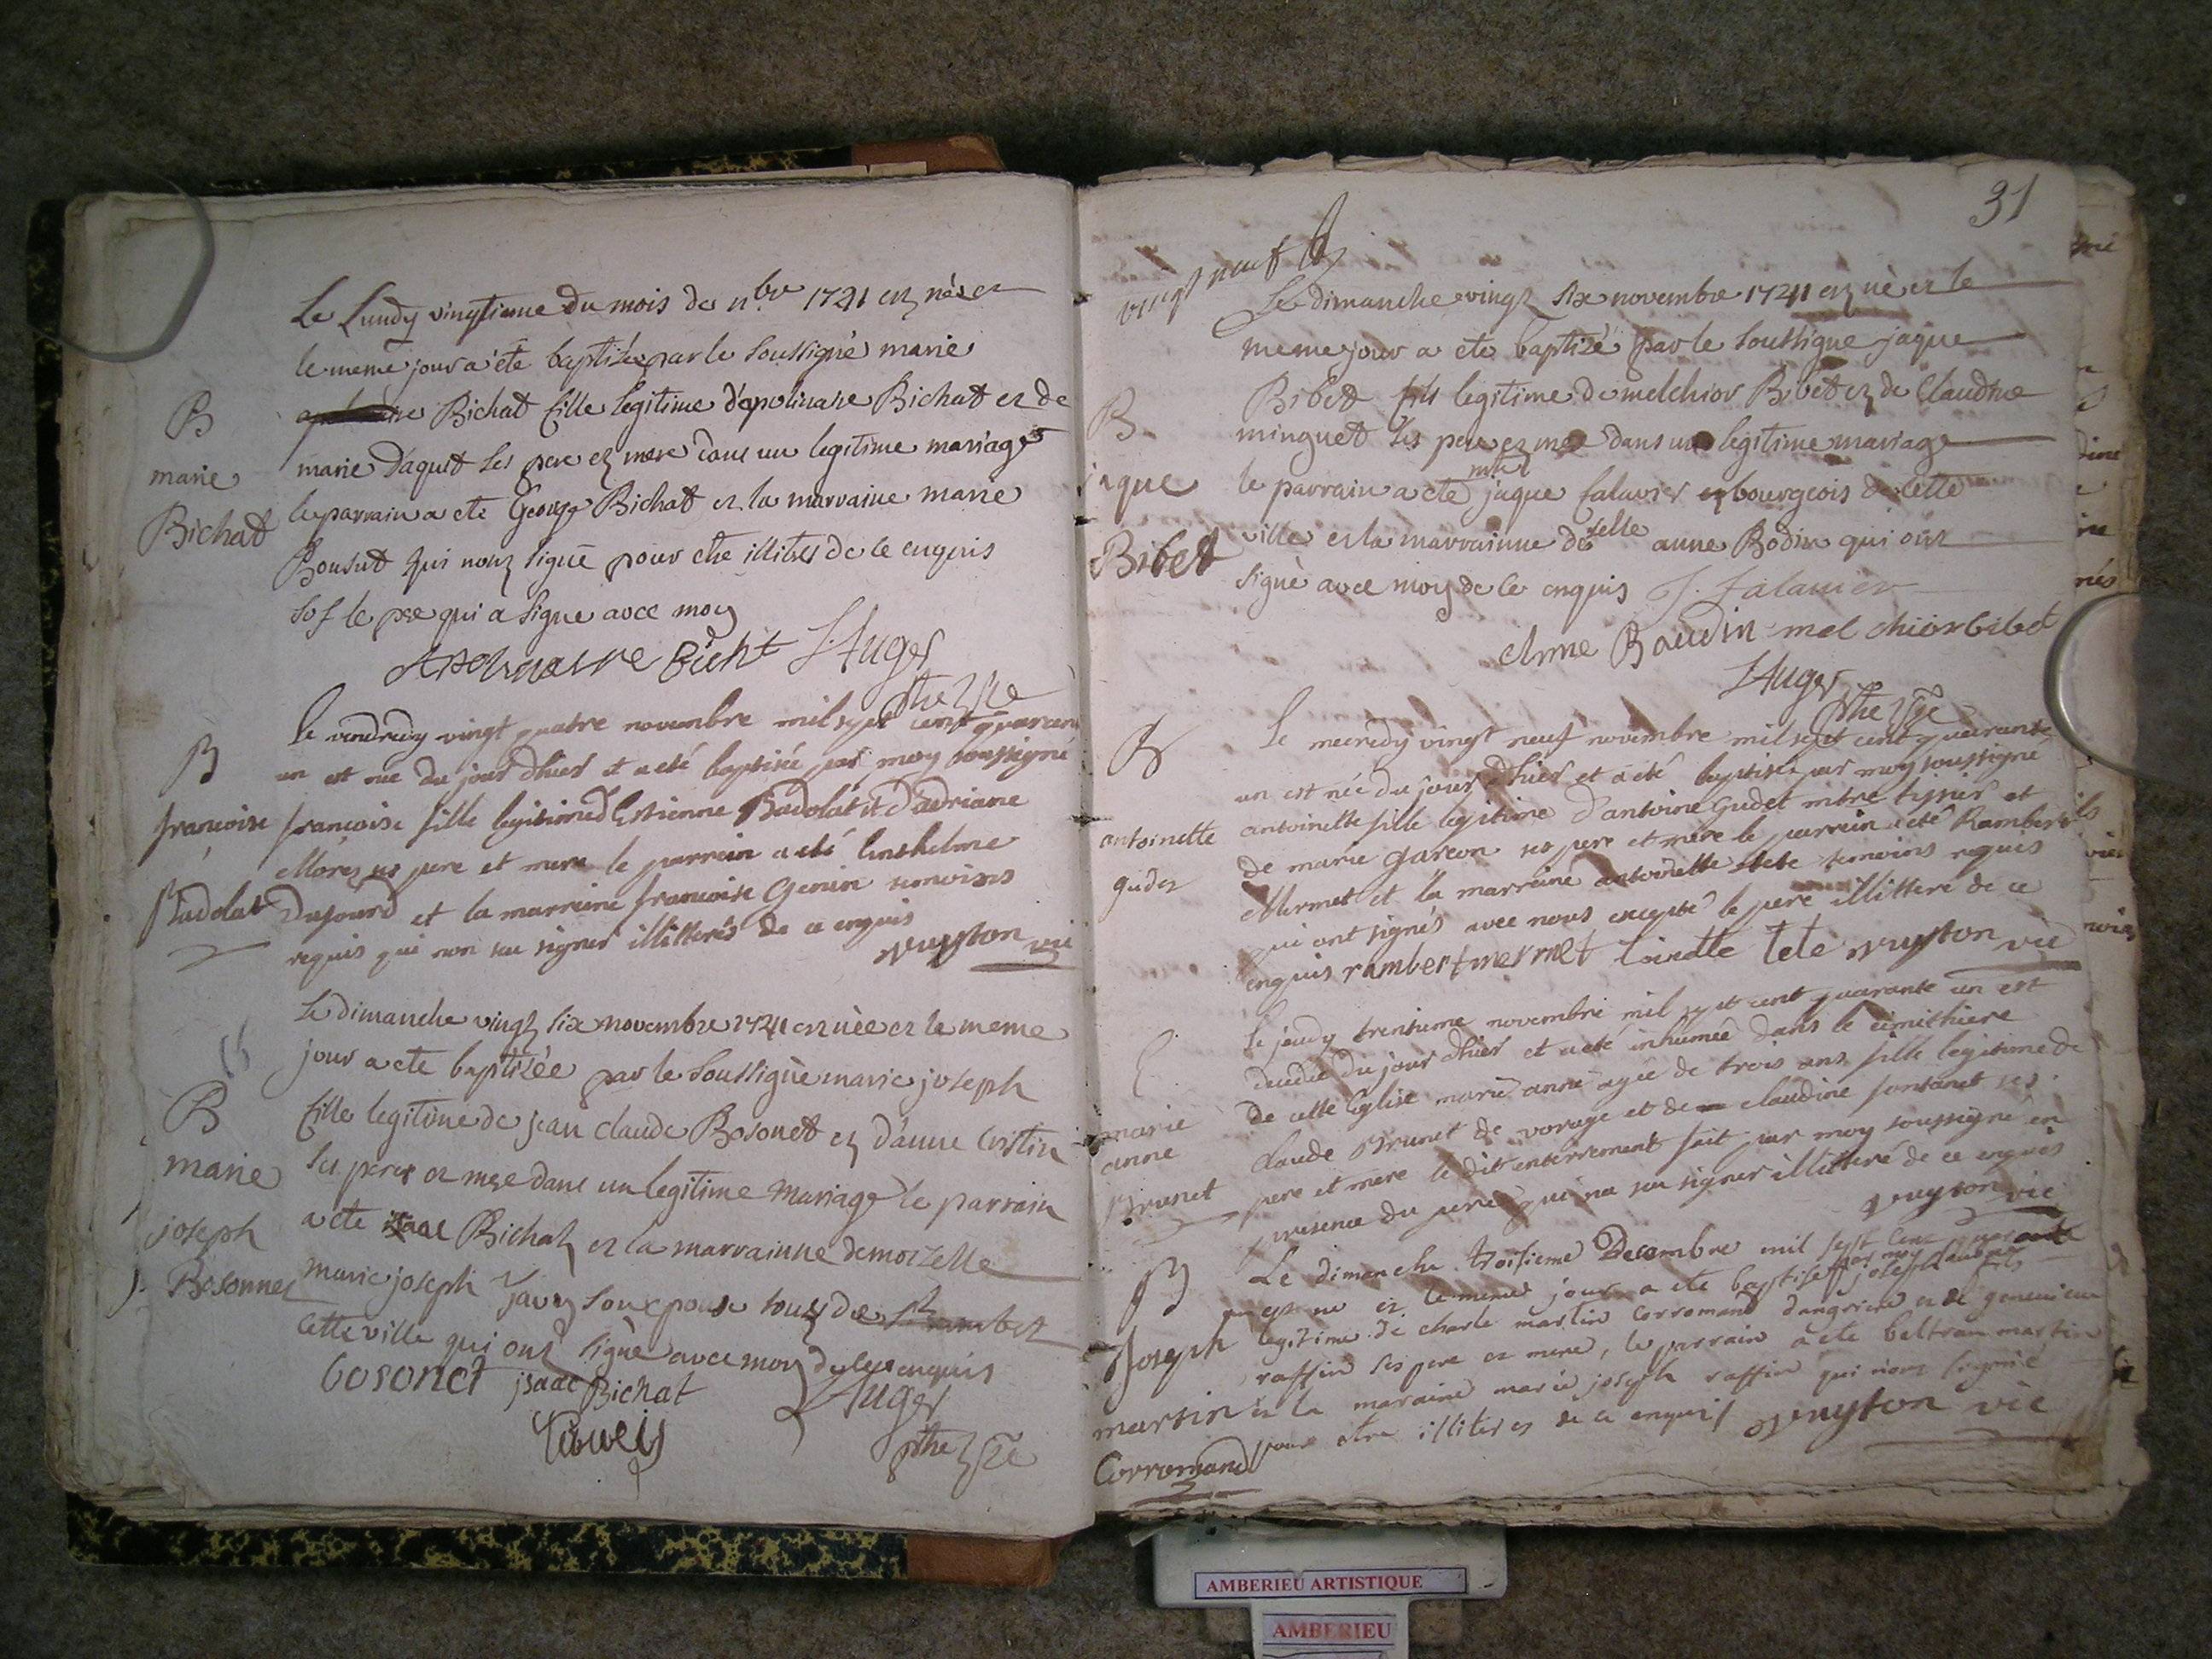 Le Lundy vingtieme du mois de nbre 1741 est née et
le meme jour a été baptizée par le soussigné marie
Bichat fille legitime d'apolinaire Bichat et de
marie daquet ses pere et mere dans un legitime mariage
le parrain a ete George Bichat et la marraine marie
qui nont signé pour etre illitéré de ce enquis
sof le pere qui a signe avec moy
B
marie
Bichat
Apolinaire Bicht J Auger
ptre
le vendredy vingt quatre novembre mil sept cent quarante
un est née du jour d'hier et a été baptisée par moy soussigné
françoise fille legitime d'Estienne Badolat et d'adriane
Mores ses pere et mere le parrein a eté Enthelme
Dufourd et la marreine francoise Genin temoins
requis qui n'ont su signer illitterés de ce enquis
B
françoise
Badolat
vuyton vic
Le dimanche vingt six novembre 1741 est née et le meme
jour a ete baptizée par le soussigné marie joseph
fille legitime de jean claude Bosonet et d'anne Cristin
ses pere et mere dans un legitime mariage le parrain
a ete isaac Bichat et la marrainne demoizelle
marie joseph son epouse tous de St Rambert
cette ville qui ont signé avec moy de ce enquis
B
marie
joseph
Bosonnet
bosonet isaac Bichat J Auger
ptre
31
vingt neuf
Le dimanche vingt six novembre 1741 est né et le
meme jour a ete baptizé par le soussigné jaque
Bibet fils legitime de melchior Bibet et de Claudine
minguet ses pere et mere dans un legitime mariage
le parrain a ete jaque falavier bourgeois de cette
ville et la marrainne dselle anne Bodin qui ont
signé avec moy de ce enquis J. falavier
B
jaque
Bibet
Anne Baudin melchior bibet
J Auger
ptre
Le mecredy vingt neuf novembre mil sept cent quarante
un est née du jour d'hier et a eté baptisée par moy soussigné
antoinette fille legitime d'antoine Gudet mitre tissier et
de marie Garcon ses pere et mere le parrein a eté Rambert
Mermet et la marreine antoinette tete temoins requis
qui ont signés avec nous excepté le pere illitteré de ce
enquis rambert mermet toinette tete vuyton vic
B
antoinette
gudet
le jeudy trentieme novembre mil sept cent quarante un est
decedée du jour d'hier et a eté inhumée dans le cimithiere
de cette Eglise marie anne agée de trois ans fille legitime de
claude Brunet de vorage et de claudine fontanet ses
pere et mere le dit enterrement fait par moy soussigné en
presence du pere qui n'a su signer illitteré de ce enquis
marie
anne
Brunet
vuyton vic
Le dimenche troisieme Decembre mil sept cent quarante
un est né et le meme jour a ete baptisé par moy joseph fils
legitime de charle martin Corromand dangrieres et de genevieve
raffin ses pere et mere, le parrain a ete beltram martin
et la maraine marie joseph raffin qui n'ont signié
pour etre illiteres de ce enquis vuyton vic
B
Joseph
martin
Corromand
AMBERIEU ARTISTIQUE
AMBERIEU